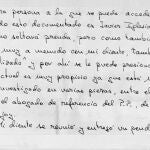 ra persona a la que se puede accede
do esto documentado es Javier Iglesia
no soltara prenda, pero como tambié
muy a menudo con mi cliente, tamb
izado" y por ahí se le puede presion
ctual es muy propicio ya que este s
investigado en varias piezas, entre el
el abogado de referencia del P.P., de
l cliente se reunio y entrego un pend